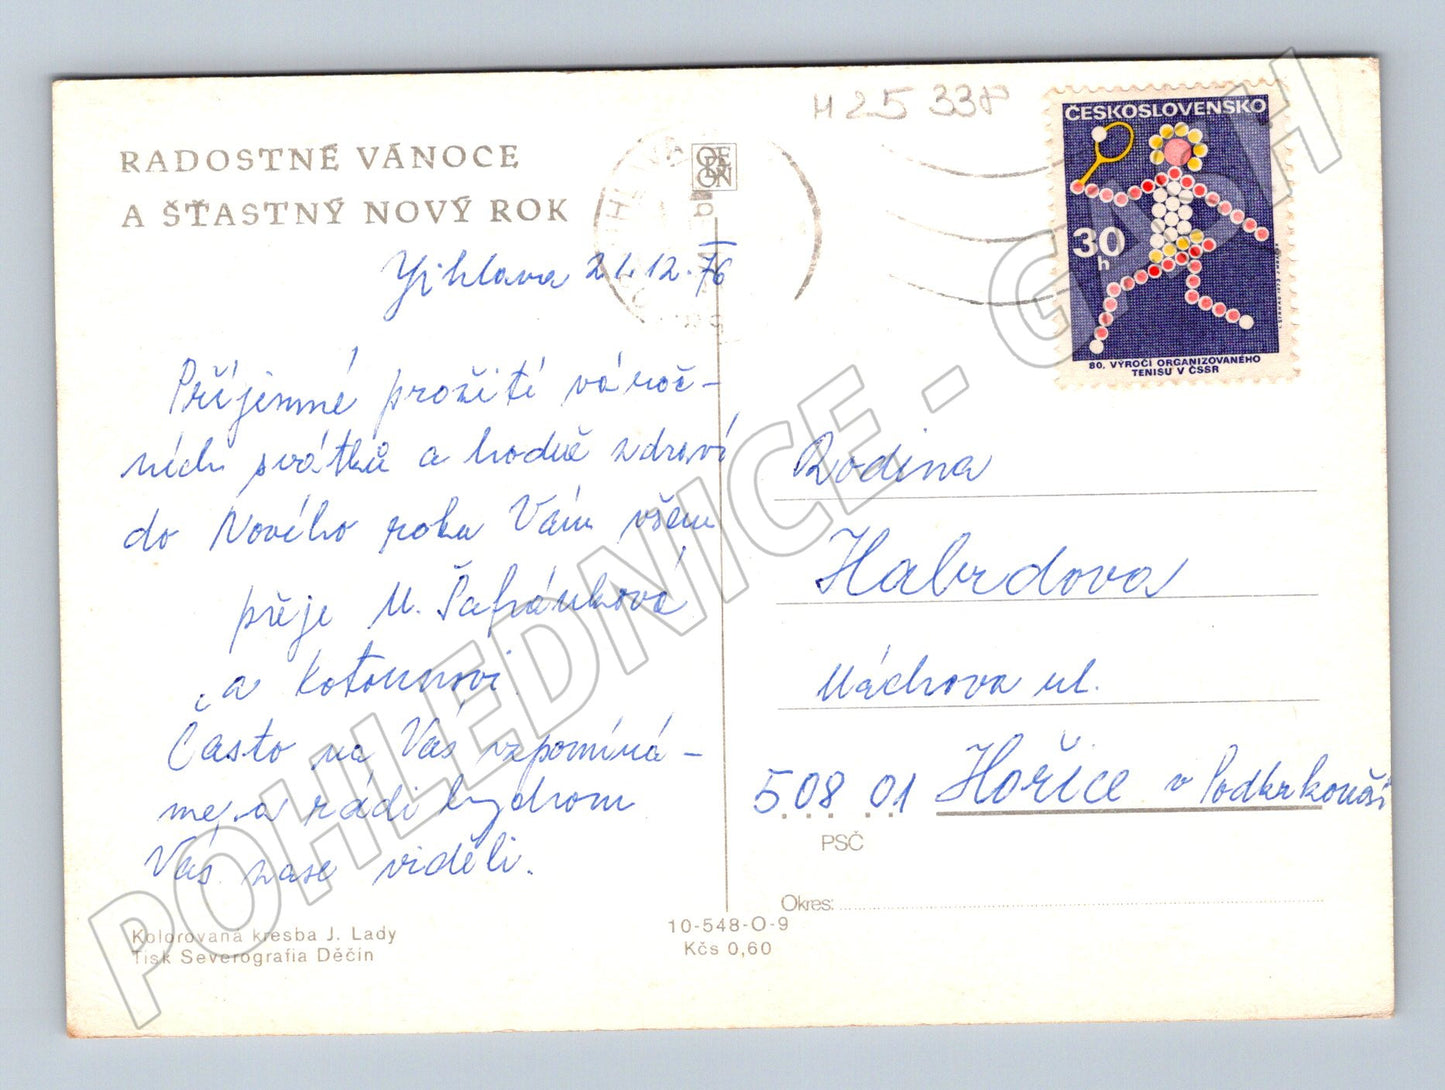 M 25 338
RADOSTNÉ VÁNOCE
A ŠŤASTNÝ NOVÝ ROK
ODEON
ČESKOSLOVENSKO
30
h
80. VÝROČÍ ORGANIZOVANÉHO
TENISU V ČSSR
Yihlava 21.12.76
Příjemné prožití vánoč-
ních svátků a hodně zdraví
do Nového roku Vám všem
přeje M. Šafránková
a Kotounovi.
Často na Vás vzpomíná-
me, a rádi bychom
Vás zase viděli.
Rodina
Habrdova
Máchova ul.
508 01 Hořice v Podkrkonoší
PSČ
Okres:
Kolorovaná kresba J. Lady
Tisk Severografia Děčín
10-548-O-9
Kčs 0,60
POHLEDNICE - GASH